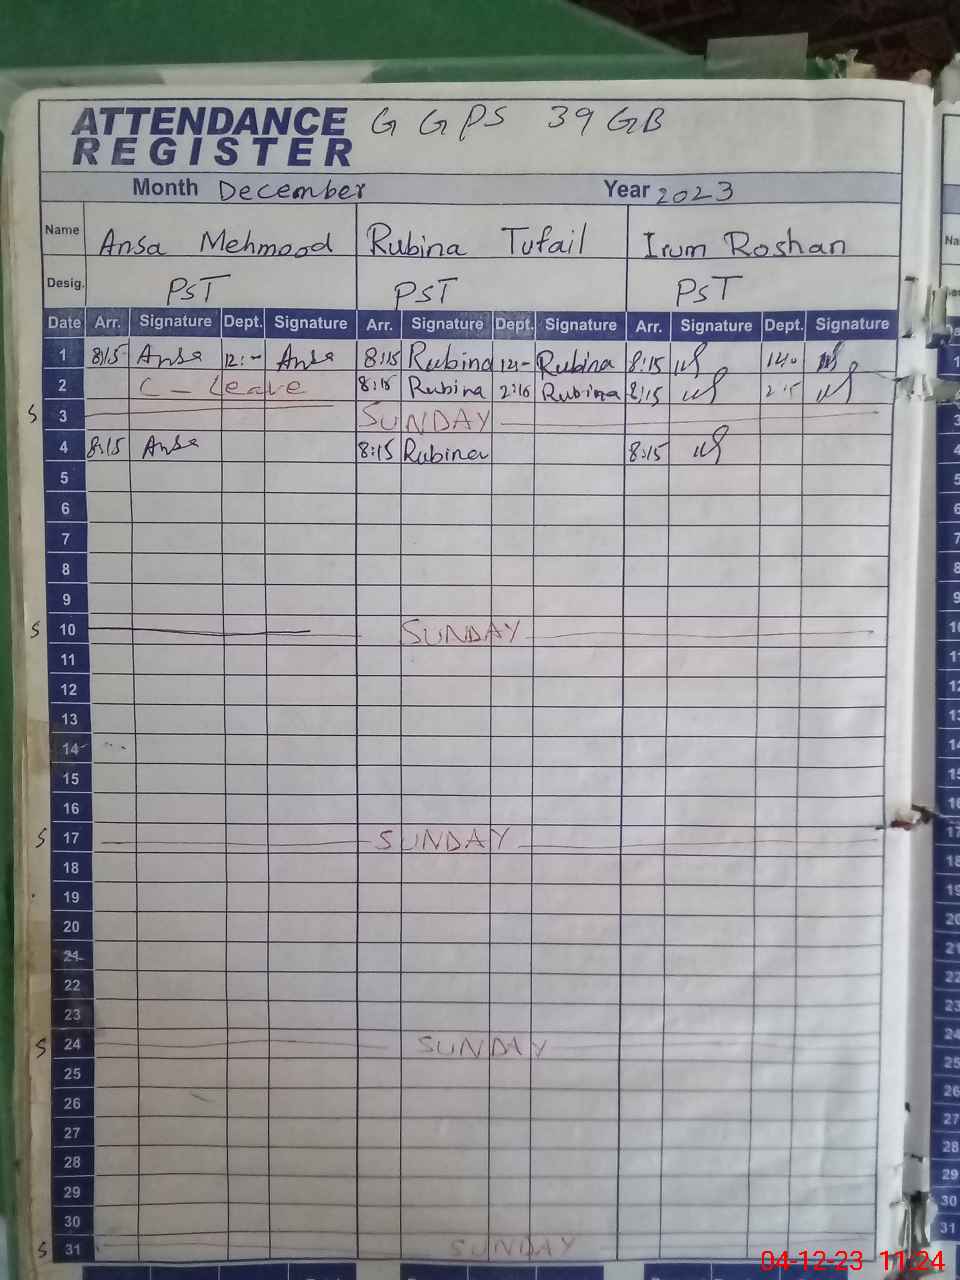 ATTENDANCE REGISTER G GPS 39 GB
Month December Year 2023
Name Ansa Mehmood Rubina Tufail Irum Roshan
Desig. PST PST PST
Date Arr. Signature Dept. Signature Arr. Signature Dept. Signature Arr. Signature Dept. Signature
1 8:15 Ansa 12:- Ansa 8:15 Rubina 12:- Rubina 8:15
2 C - Leave 8:15 Rubina 2:15 Rubina 8:15 2:15
S 3 SUNDAY
4 8:15 Ansa 8:15 Rubina 8:15
5
6
7
8
9
S 10 SUNDAY
11
12
13
14
15
16
S 17 SUNDAY
18
19
20
21
22
23
S 24 SUNDAY
25
26
27
28
29
30
S 31 SUNDAY
04-12-23 11:24